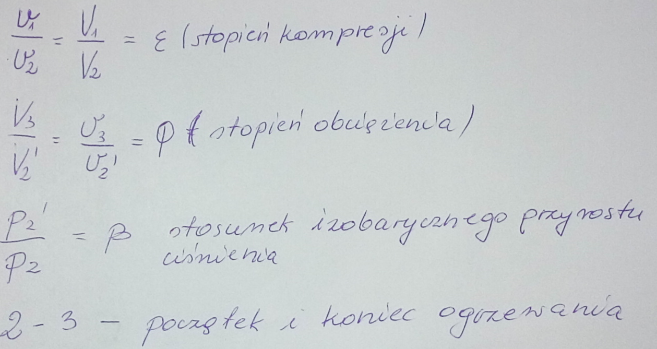 v1/v2 = V1/V2 = ε (stopień kompresji)
V3/V2' = v3/v2' = φ ( stopień obciężenia)
p2'/p2 = β stosunek izobarycznego przyrostu
ciśnienia
2 - 3 - początek i koniec ogrzewania